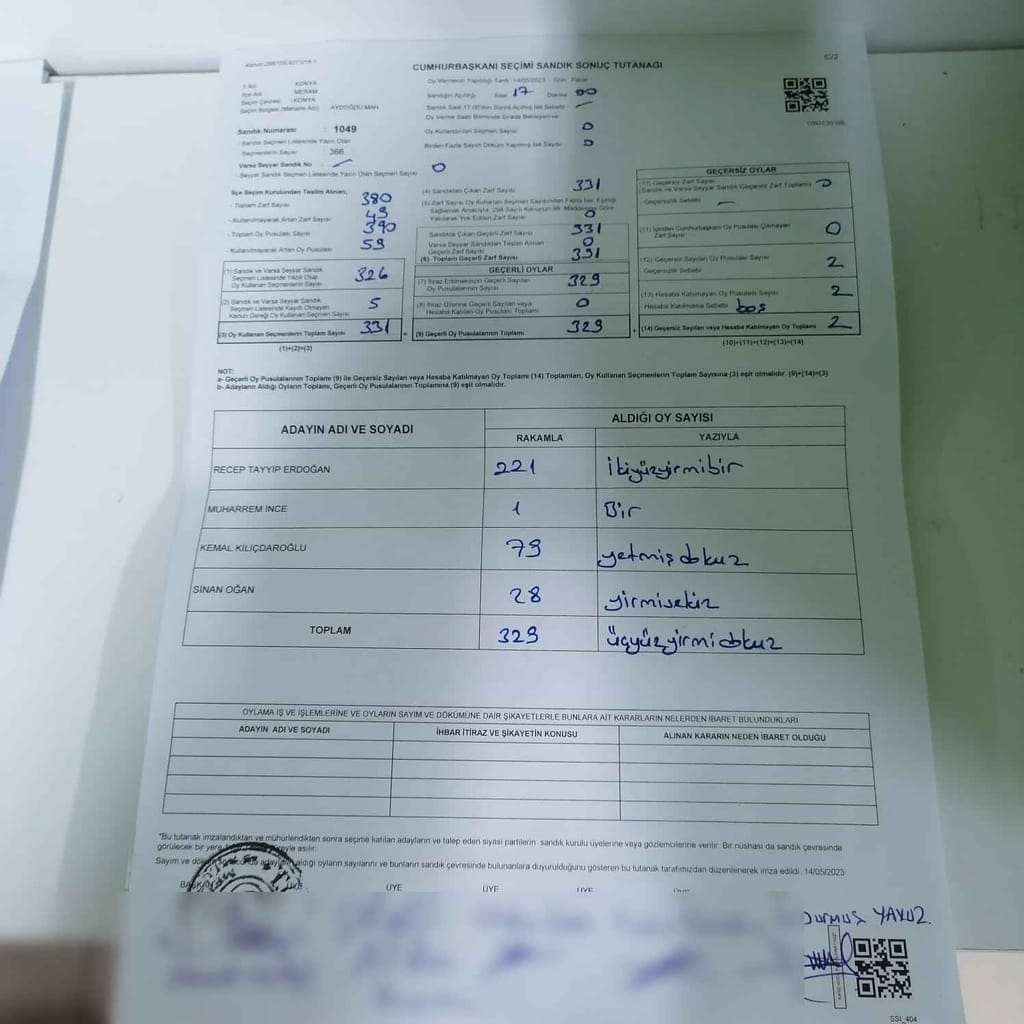 C/2
CUMHURBAŞKANI SEÇİMİ SANDIK SONUÇ TUTANAĞI
İli Adı : KONYA
İlçe Adı : MERAM
Seçim Çevresi : KONYA
Seçim Bölgesi (Mahalle Adı) : AYDOĞDU MAH
Sandık Numarası : 1049
Sandık Seçmen Listesinde Yazılı Olan
Seçmenlerin Sayısı : 366
Varsa Seyyar Sandık No
Seyyar Sandık Seçmen Listesinde Yazılı Olan Seçmen Sayısı 0
Oy Vermenin Yapıldığı Tarih : 14/05/2023 Gün : Pazar
Sandığın Açıldığı Saat 17 Dakika 00
Sandık Saat 17:00'den Sonra Açılmış İse Sebebi
Oy Verme Saati Bitiminde Sırada Bekleyen ve
Oy Kullandırılan Seçmen Sayısı 0
Birden Fazla Sayım Döküm Yapılmış İse Sayısı 0
İlçe Seçim Kurulundan Teslim Alınan;
- Toplam Zarf Sayısı 380
- Kullanılmayarak Artan Zarf Sayısı 49
- Toplam Oy Pusulası Sayısı 390
- Kullanılmayarak Artan Oy Pusulası 59
(1) Sandık ve Varsa Seyyar Sandık
Seçmen Listesinde Yazılı Olup
Oy Kullanan Seçmenlerin Sayısı 326
(2) Sandık ve Varsa Seyyar Sandık
Seçmen Listesinde Kaydı Olmayan
Kanun Gereği Oy Kullanan Seçmenlerin Sayısı 5
(3) Oy Kullanan Seçmenlerin Toplam Sayısı 331
(1)+(2)=(3)
(4) Sandıktan Çıkan Zarf Sayısı 331
(5) Zarf Sayısı Oy Kullanan Seçmen Sayısından Fazla İse, Eşitliği
Sağlamak Amacıyla, 298 Sayılı Kanunun 98. Maddesine Göre
Yakılarak Yok Edilen Zarf Sayısı 0
Sandıkta Çıkan Geçerli Zarf Sayısı 331
Varsa Seyyar Sandıktan Teslim Alınan
Geçerli Zarf Sayısı 0
(6) Toplam Geçerli Zarf Sayısı 331
GEÇERLİ OYLAR
(7) İtiraz Edilmeksizin Geçerli Sayılan
Oy Pusulalarının Sayısı 329
(8) İtiraz Üzerine Geçerli Sayılan veya
Hesaba Katılan Oy Pusulalarının Toplamı 0
(9) Geçerli Oy Pusulalarının Toplamı 329
GEÇERSİZ OYLAR
(10) Geçersiz Zarf Sayısı
(Sandık ve Varsa Seyyar Sandık Geçersiz Zarf Toplamı) 0
Geçersizlik Sebebi
(11) İçinden Cumhurbaşkanı Oy Pusulası Çıkmayan
Zarf Sayısı 0
(12) Geçersiz Sayılan Oy Pusulası Sayısı 2
Geçersizlik Sebebi
(13) Hesaba Katılmayan Oy Pusulası Sayısı 2
Hesaba Katılmama Sebebi boş
(14) Geçersiz Sayılan veya Hesaba Katılmayan Oy Toplamı 2
(10)+(11)+(12)+(13)=(14)
NOT:
a- Geçerli Oy Pusulalarının Toplamı (9) ile Geçersiz Sayılan veya Hesaba Katılmayan Oy Toplamı (14) Toplamları, Oy Kullanan Seçmenlerin Toplam Sayısına (3) eşit olmalıdır. (9)+(14)=(3)
b- Adayların Aldığı Oyların Toplamı, Geçerli Oy Pusulalarının Toplamına (9) eşit olmalıdır.
ADAYIN ADI VE SOYADI
ALDIĞI OY SAYISI
RAKAMLA YAZIYLA
RECEP TAYYİP ERDOĞAN 221 ikiyüzyirmibir
MUHARREM İNCE 1 Bir
KEMAL KILIÇDAROĞLU 79 yetmişdokuz
SİNAN OĞAN 28 yirmisekiz
TOPLAM 329 üçyüzyirmidokuz
OYLAMA İŞ VE İŞLEMLERİNE VE OYLARIN SAYIM VE DÖKÜMÜNE DAİR ŞİKAYETLERLE BUNLARA AİT KARARLARIN NELERDEN İBARET BULUNDUKLARI
ADAYIN ADI VE SOYADI İHBAR İTİRAZ VE ŞİKAYETİN KONUSU ALINAN KARARIN NEDEN İBARET OLDUĞU
"Bu tutanak imzalandıktan ve mühürlendikten sonra seçime katılan adayların ve talep eden siyasi partilerin sandık kurulu üyelerine veya gözlemcilerine verilir. Bir nüshası da sandık çevresinde
görülecek bir yere asılır.
Sayım ve döküm aldığı oyların sayılarını ve bunların sandık çevresinde bulunanlara duyurulduğunu gösteren bu tutanak tarafımızdan düzenlenerek imza edildi. 14/05/2023
ÜYE ÜYE ÜYE ÜYE
DURMUŞ YAVUZ.
SSI_404